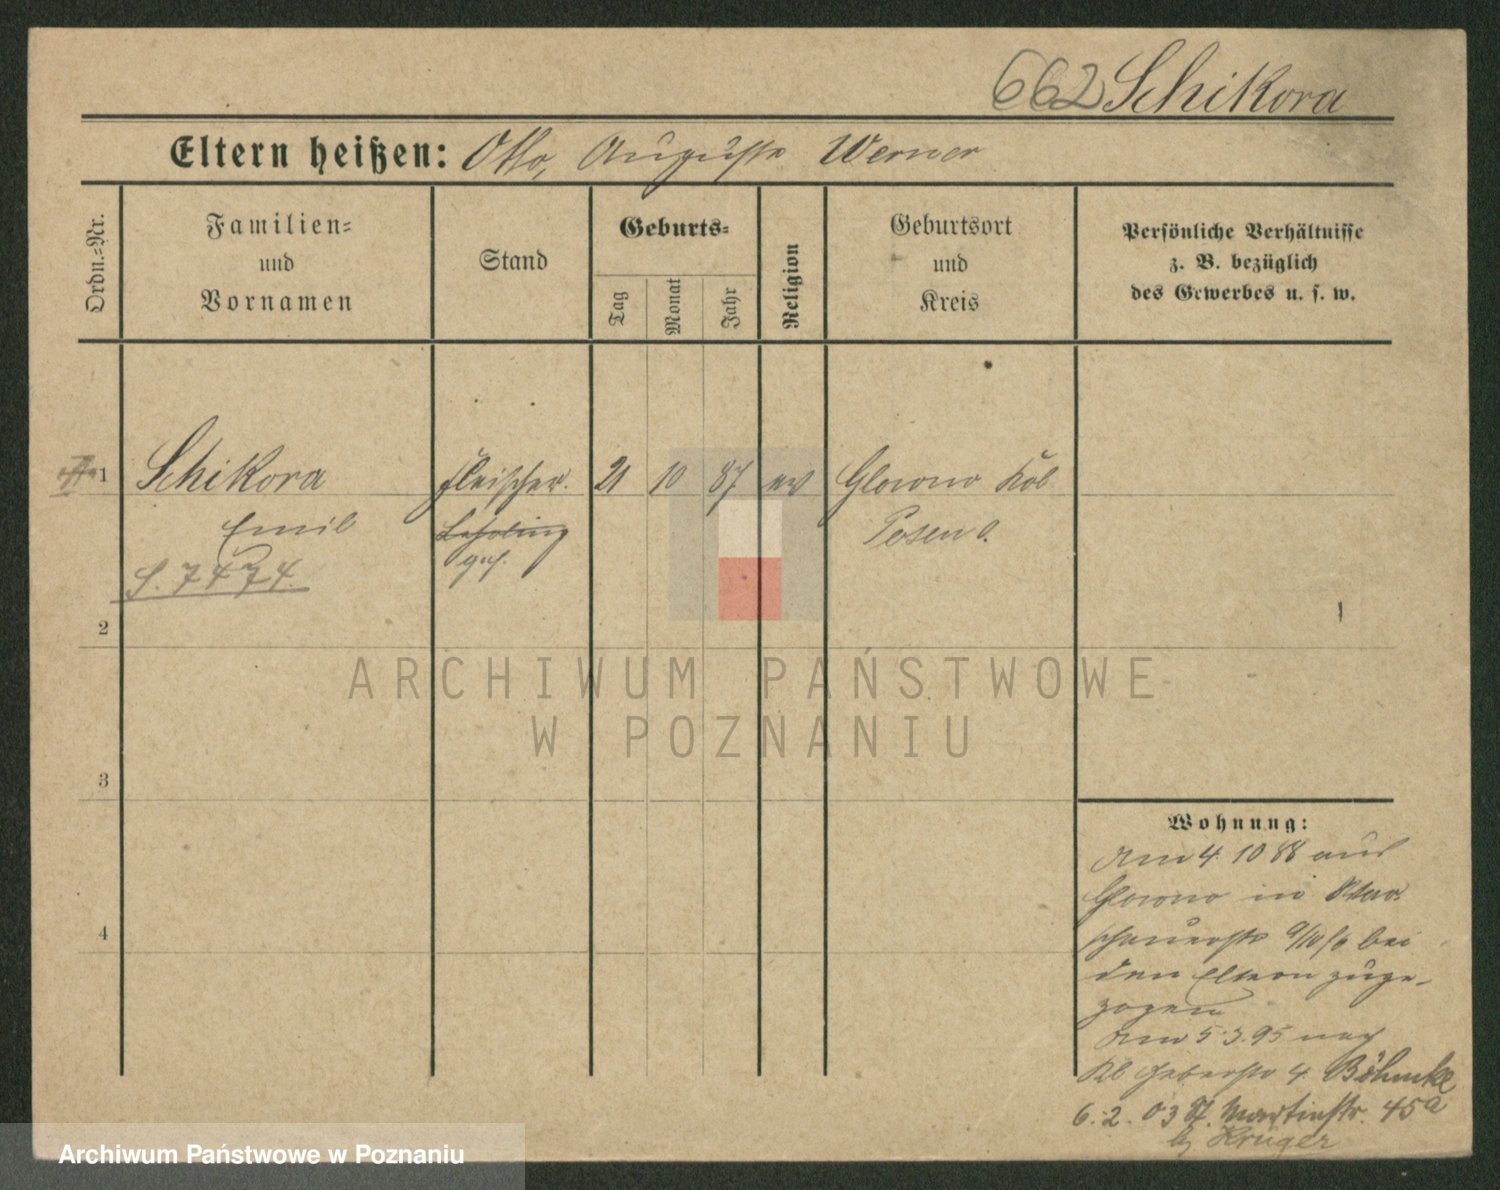 662 Schikora
Eltern heißen: Otto, Auguste Werner
Ordn.-Nr.
Familien-
und
Vornamen
Stand
Geburts-
Tag
Monat
Jahr
Religion
Geburtsort
und
Kreis
Persönliche Verhältnisse
z. B. bezüglich
des Gewerbes u. s. w.
1 Schikora Fleischer. 21 10 87 ev Glowno
Emil Lehrling Posen O.
S. 7474. ges.
2
3
4
ARCHIWUM PAŃSTWOWE
W POZNANIU
Wohnung:
Am 4 10 88 aus
Glowno in
bei
den Eltern zuge-
zogen
Am 5.3.95 nach
Kl Gerberstr 4 Böhmke
6.2.03 St. Martinstr. 45a
b. Krüger
Archiwum Państwowe w Poznaniu